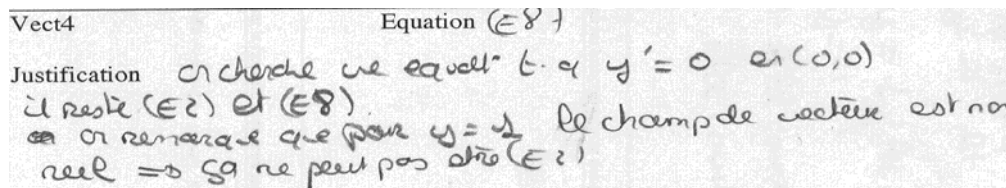 Vect4 Equation (E8)
Justification on cherche une equat° t.q y' = 0 en (0,0)
il reste (E2) et (E8)
on remarque que pour y = 1 le champ de vecteur est no
reel => ça ne peut pas etre (E2)